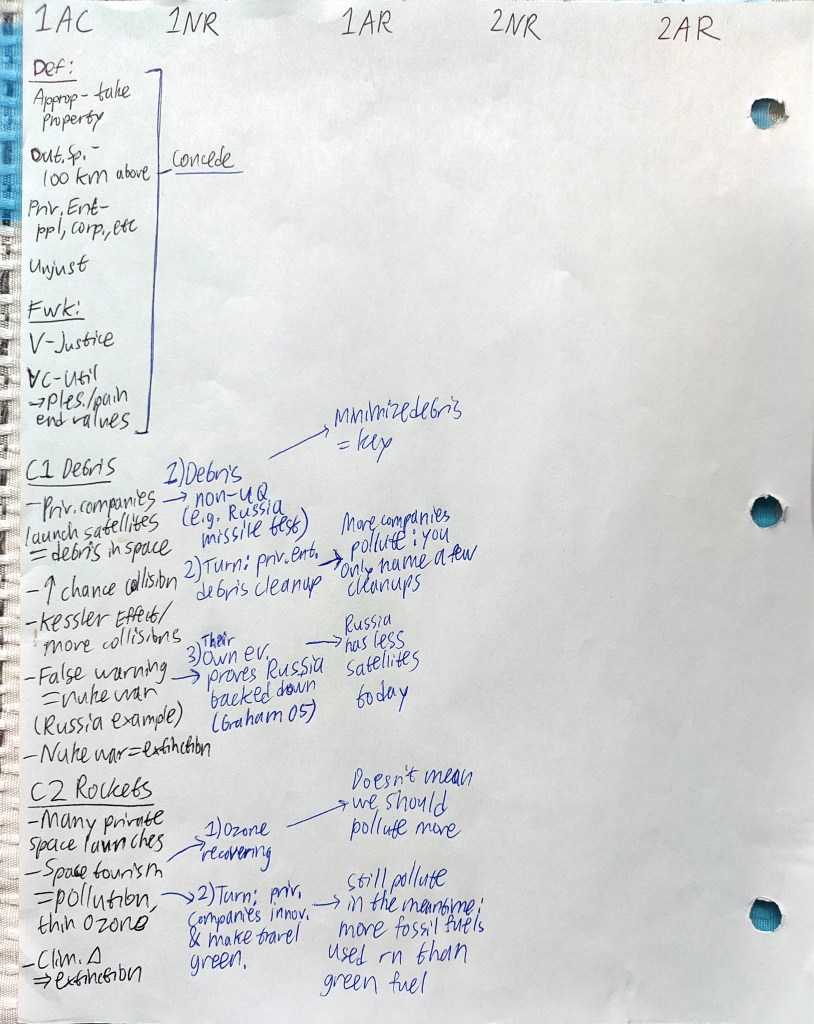 1AC 1NR 1AR 2NR 2AR
Def:
Approp - take
property
Out. Sp. -
100 km above
Priv. Ent -
ppl, corp., etc
Unjust
Fwk:
V - Justice
VC - Util
→ ples./pain
end values
Concede
C1 Debris
- Priv. companies
launch satellites
= debris in space
- ↑ chance collision
- Kessler Effect/
more collisions
- False warning
= nuke war
(Russia example)
- Nuke war = extinction
1) Debris
→ non-UQ
(e.g. Russia
missile test)
2) Turn: priv. ent.
debris cleanup
3) Their
own ev.
proves Russia
backed down
(Graham 05)
Minimize debris
= key
More companies
pollute; you
only name a few
cleanups
Russia
has less
satellites
today
C2 Rockets
- Many private
space launches
- Space tourism
= pollution,
thin ozone
- Clim. Δ
⇒ extinction
1) Ozone
recovering
2) Turn: priv.
companies innov.
& make travel
green.
Doesn't mean
we should
pollute more
Still pollute
in the meantime;
more fossil fuels
used rn than
green fuel